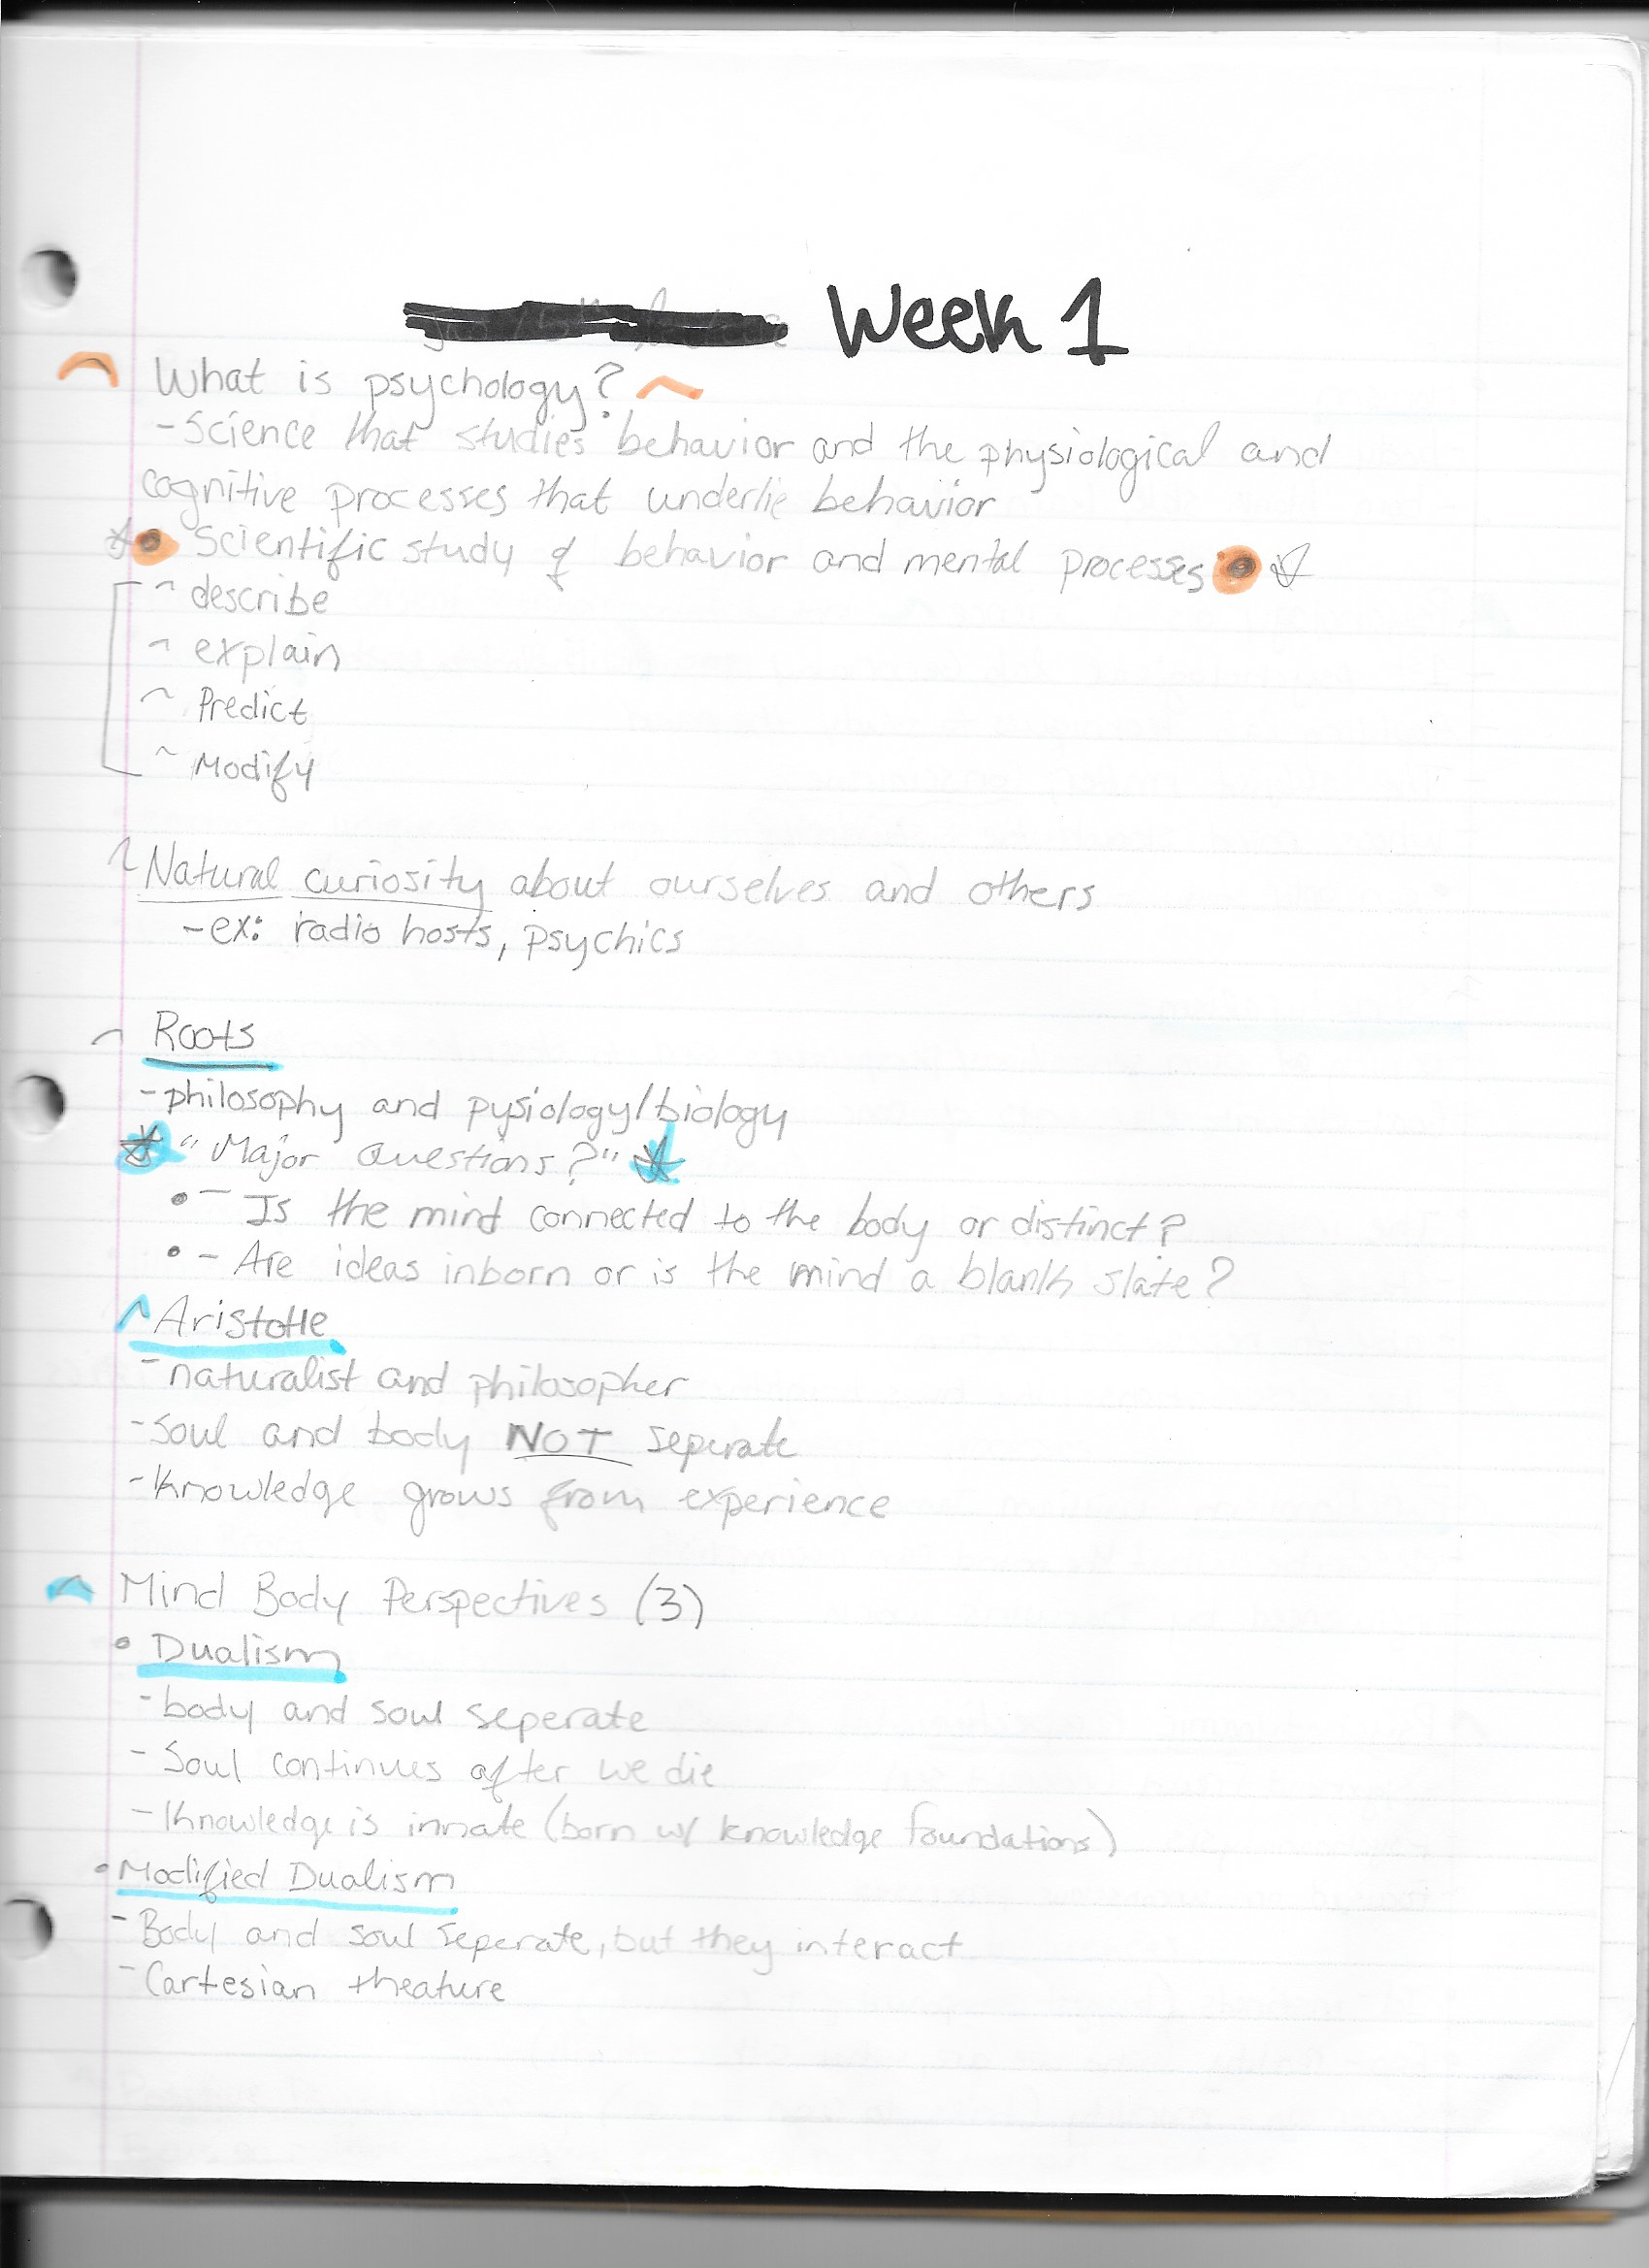 Week 1
What is psychology?
-Science that studies behavior and the physiological and
cognitive processes that underlie behavior
Scientific study of behavior and mental processes
~ describe
~ explain
~ Predict
~ Modify
~ Natural curiosity about ourselves and others
-ex: radio hosts, psychics
~ Roots
-philosophy and pysiology/biology
"Major Questions?"
• - Is the mind connected to the body or distinct?
• - Are ideas inborn or is the mind a blank slate?
^ Aristotle
-naturalist and philosopher
-Soul and body NOT seperate
-Knowledge grows from experience
^ Mind Body Perspectives (3)
• Dualism
-body and soul seperate
-Soul continues after we die
-Knowledge is innate (born w/ knowledge foundations)
• Modified Dualism
-Body and soul seperate, but they interact
-Cartesian theature